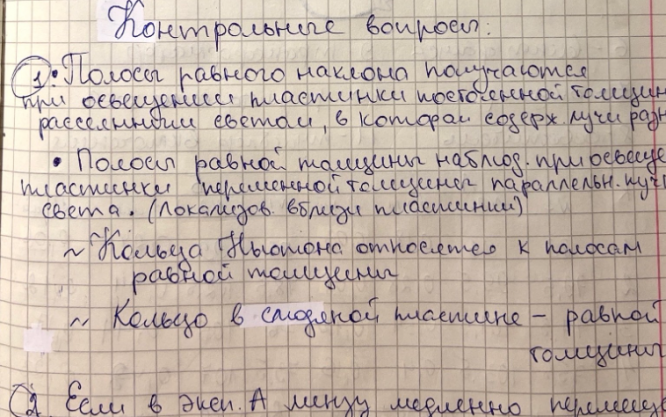 Контрольные вопросы:
1. • Полосы равного наклона получаются
при освещении пластинки постоянной толщин
рассеянным светом, в котором содерж. лучи разн
• Полосы равной толщины наблюд. при освеще
пластинки переменной толщины параллельн. пуч
света. (Локализов. вблизи пластинки)
~ Кольца Ньютона относятся к полосам
равной толщины
~ Кольцо в слюдяной пластине – равной
толщины
2. Если в эксп. А линзу медленно перемещ